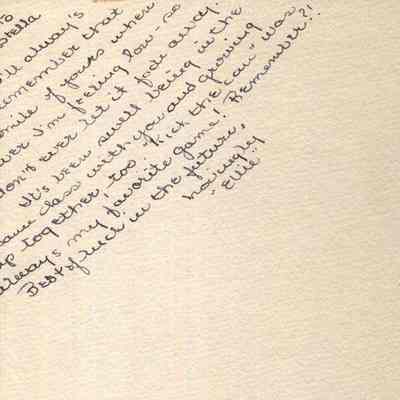 To
Stella
I'll always
remember that
smile of yours when
ever I'm feeling low - so
don't ever let it fade away.
It's been swell being in the
same class with you and growing
up together, too. "Kick the can" was
always my favorite game! Remember?!
Best of luck in the future,
Lovingly
"Ellie"